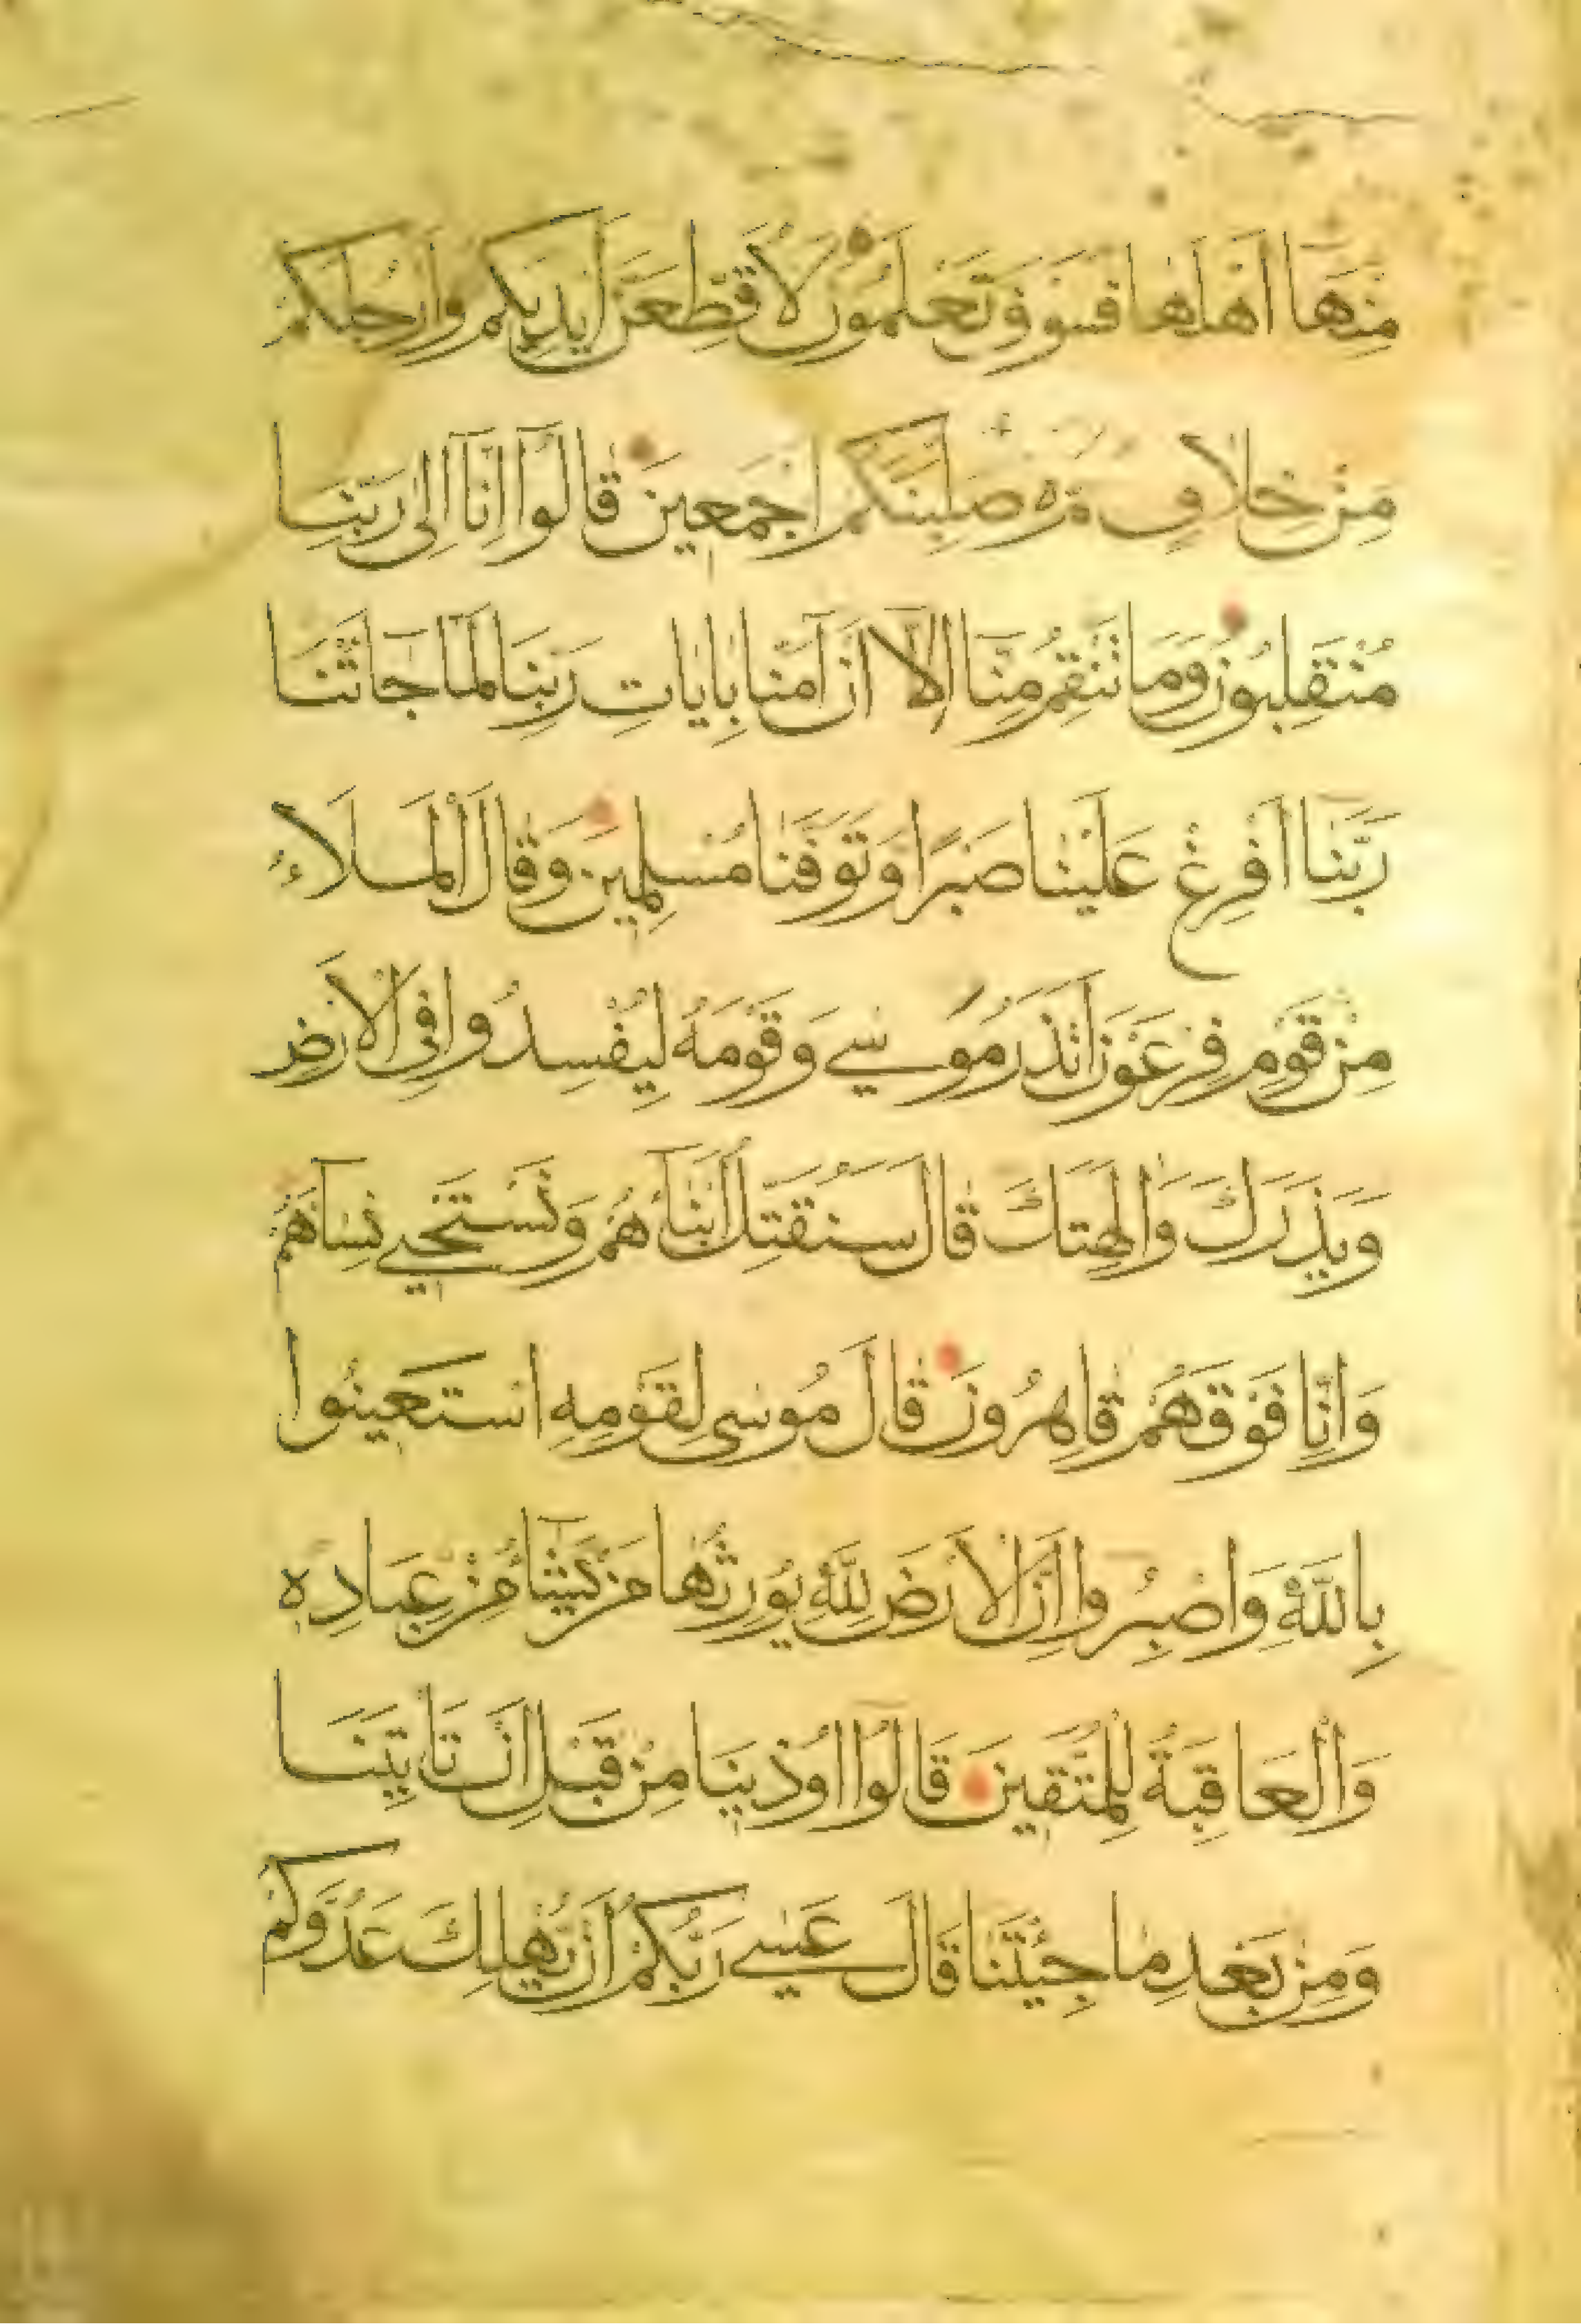 مِنْهَا اَهْلَهَا فَسَوْفَ تَعْلَمُونَ لَاُقَطِّعَنَّ اَيْدِيَكُمْ وَاَرْجُلَكُمْ
مِنْ خِلَافٍ ثُمَّ لَاُصَلِّبَنَّكُمْ اَجْمَعِينَ قَالُوا اِنَّا اِلَى رَبِّنَا
مُنْقَلِبُونَ وَمَا تَنْقِمُ مِنَّا اِلَّا اَنْ اٰمَنَّا بِاٰيَاتِ رَبِّنَا لَمَّا جَاتْنَا
رَبَّنَا اَفْرِغْ عَلَيْنَا صَبْرًا وَتَوَفَّنَا مُسْلِمِينَ وَقَالَ الْمَلَاءُ
مِنْ قَوْمِ فِرْعَوْنَ اَتَذَرُ مُوسٰي وَقَوْمَهُ لِيُفْسِدُوا فِي الْاَرْضِ
وَيَذَرَكَ وَاٰلِهَتَكَ قَالَ سَنُقَتِّلُ اَبْنَآءَهُمْ وَنَسْتَحْيِي نِسَآهُمْ
وَاِنَّا فَوْقَهُمْ قَاهِرُونَ قَالَ مُوسَى لِقَوْمِهِ اسْتَعِينُوا
بِاللّٰهِ وَاصْبِرُوا اِنَّ الْاَرْضَ لِلّٰهِ يُورِثُهَا مَنْ يَشَآءُ مِنْ عِبَادِهِ
وَالْعَاقِبَةُ لِلْمُتَّقِينَ قَالُوا اُوذِينَا مِنْ قَبْلِ اَنْ تَاْتِيَنَا
وَمِنْ بَعْدِ مَا جِئْتَنَا قَالَ عَسٰي رَبُّكُمْ اَنْ يُهْلِكَ عَدُوَّكُمْ